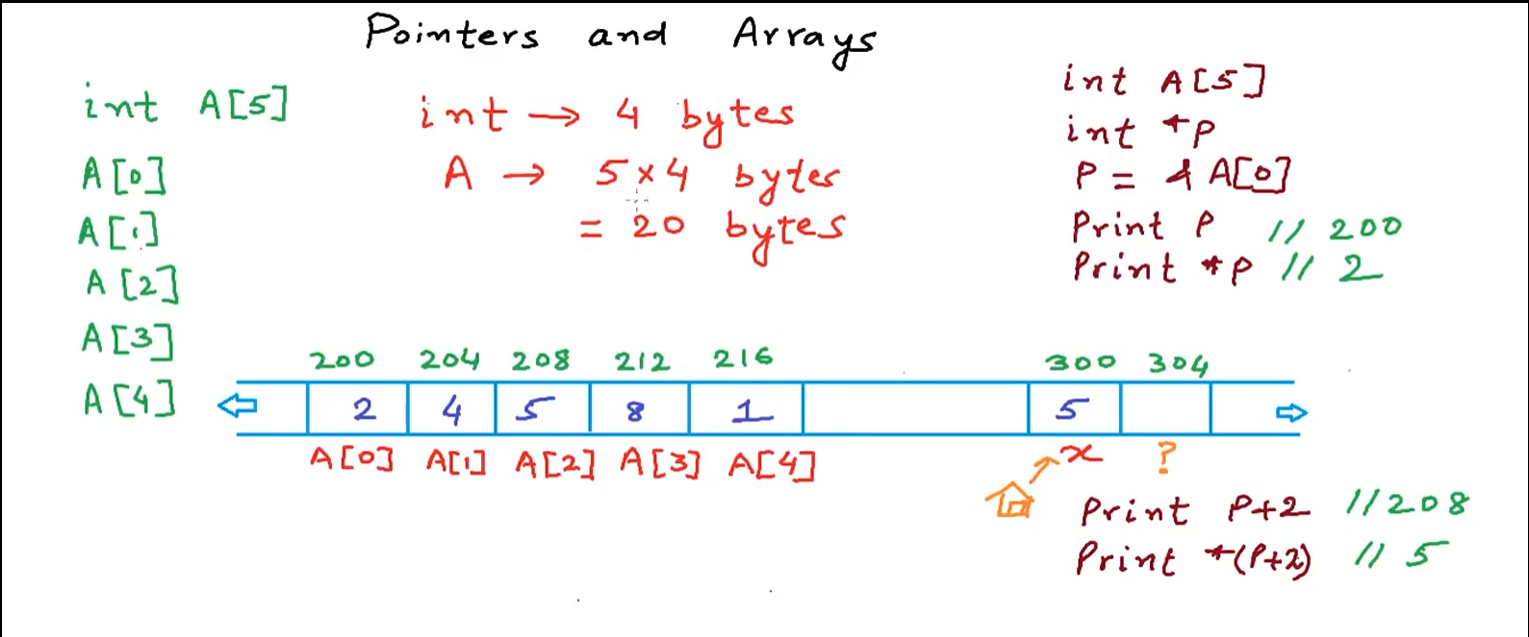 Pointers and Arrays
int A[5]
A[0]
A[1]
A[2]
A[3]
A[4]
int → 4 bytes
A → 5×4 bytes
= 20 bytes
int A[5]
int *P
P = & A[0]
Print P // 200
Print *P // 2
200 204 208 212 216 300 304
2 4 5 8 1 5
A[0] A[1] A[2] A[3] A[4] x ?
Print P+2 //208
Print *(P+2) // 5